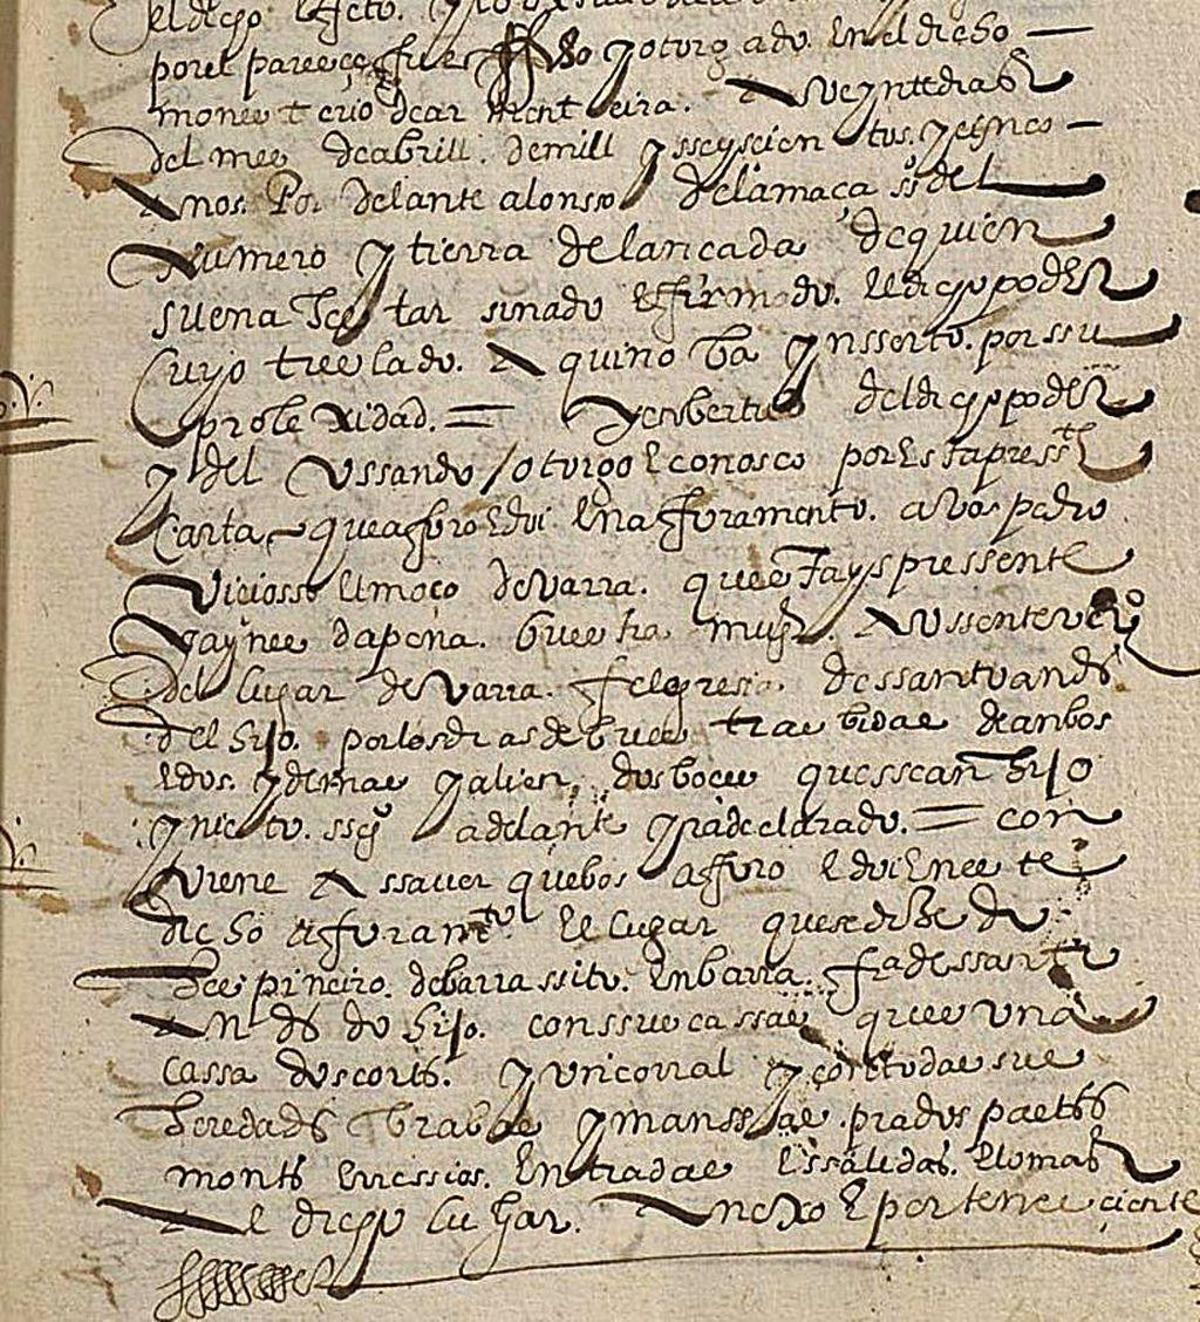 el dicho
por el pareeçe fue ffho y otorgado. En el dicho
monesterio de car . A veynte dias
del mes de abrill. de mill y sseyscientos. y çinco
Anos. Por delante alonso de lamaça sº del
Numero y tierra de lançada de quien
suena estar sinado E ffirmado. El dicho poder
Cuyo treslado. Aqui no ba ynsserto. por ssu
prolexidad. = y en bertud del dicho poder
y del Ussando / otorgo E conosco por Esta pressᵗᵉ
Carta que afforo E doi En afforamento. a vos pedro
Viciosso El moço de Varra. que estays pressente
y a ynes da pena. buestra mugᵉʳ. Aussente veçºˢ
del lugar de Varra. felegresia. de ssanto andes
del hijo. por los dias de buestras bidas de anbos
E dos. y demas y alien. dos boces que ssean hijo
y nieto. ssegº adelante yra declarado. = con
viene A ssauer que bos afforo E doi En este
dicho afforamᵗº. El lugar que se dize do
 pineiro. de barra ssito. En barra. fª de ssanto
An des do hijo. con ssus cassas que es una
cassa dos cortes. y un corral y con todas sus
heredades brabas y manssas. prados pastos
montes Erressios. Entradas E ssalidas. E lo mas
Al dicho lugar. Anexo E perteneciente